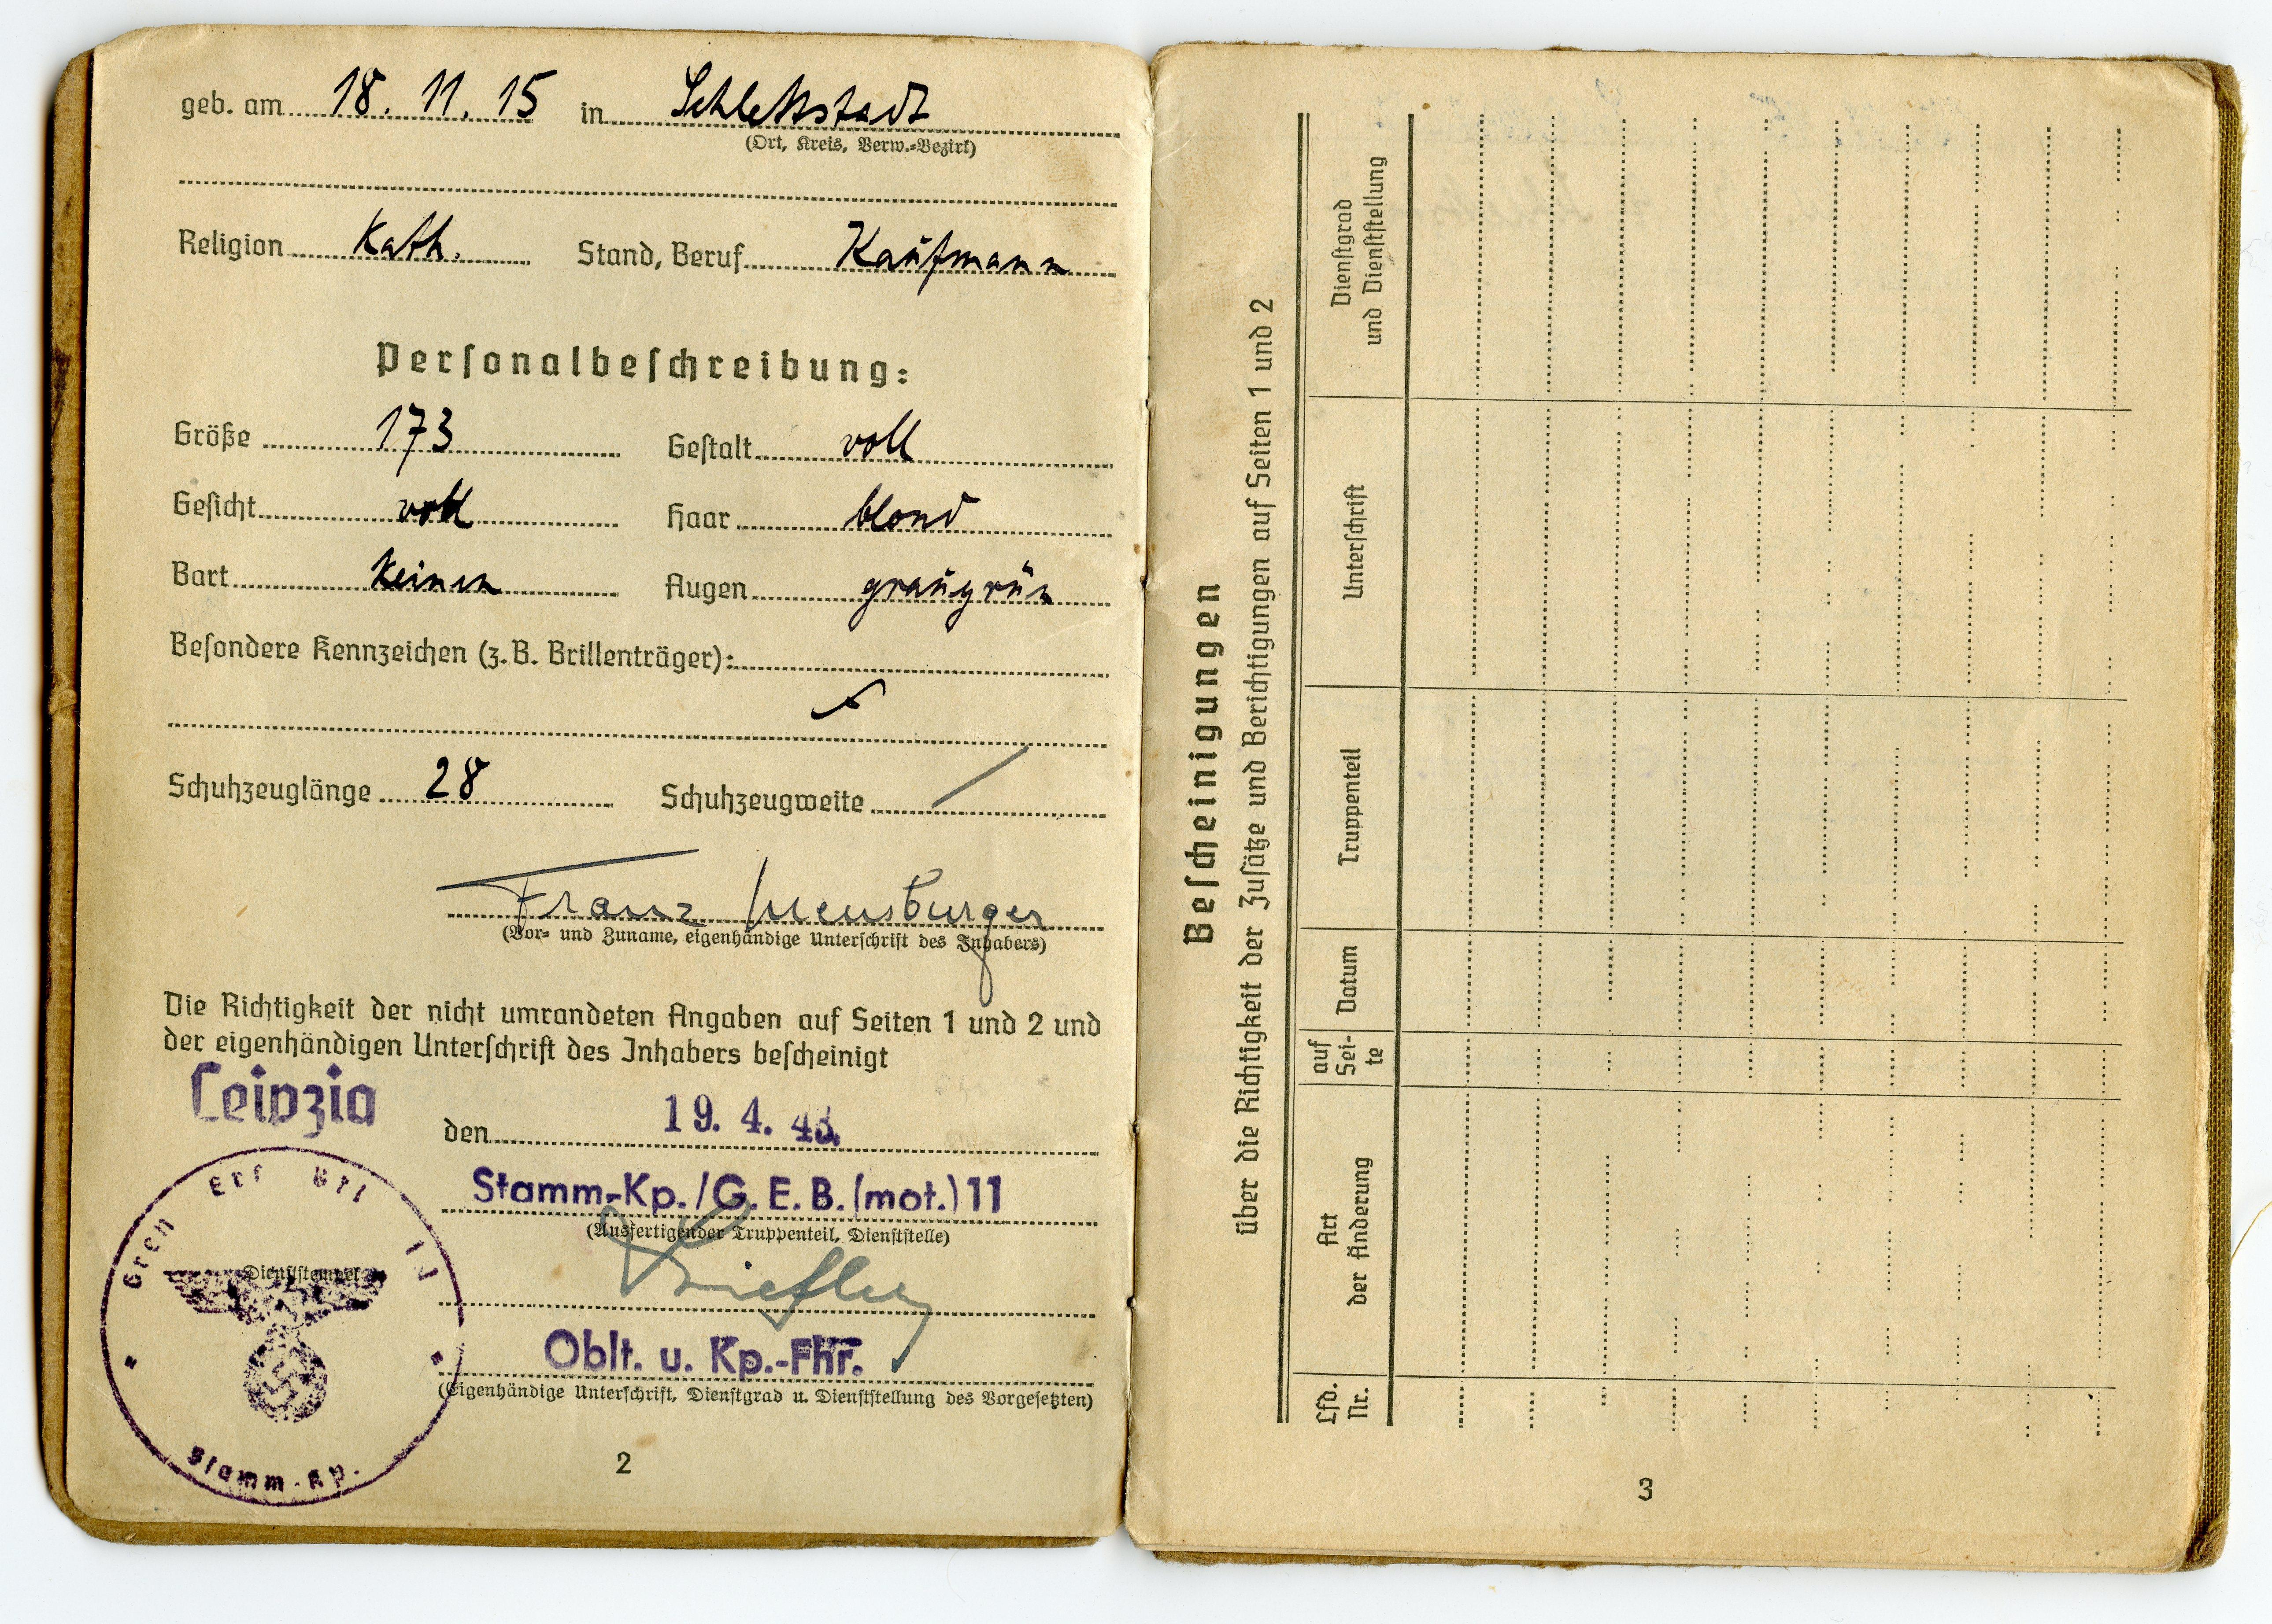 geb. am 18. 11. 15 in Schlettstadt
(Ort, Kreis, Verw.-Bezirk)
Religion Kath. Stand, Beruf Kaufmann
Personalbeschreibung:
Größe 173 Gestalt voll
Gesicht voll Haar blond
Bart keinen Augen graugrün
Besondere Kennzeichen (z. B. Brillenträger):
Schuhzeuglänge 28 Schuhzeugweite /
Franz
(Vor- und Zuname, eigenhändige Unterschrift des Inhabers)
Die Richtigkeit der nicht umrandeten Angaben auf Seiten 1 und 2 und
der eigenhändigen Unterschrift des Inhabers bescheinigt
Leipzig
den 19. 4. 43.
Stamm-Kp./G. E. B. (mot.) 11
(Ausfertigender Truppenteil, Dienststelle)
Gren Ers Btl
Dienststempel
Stamm-Kp.
Oblt. u. Kp.-Fhr.
(Eigenhändige Unterschrift, Dienstgrad u. Dienststellung des Vorgesetzten)
2
Bescheinigungen
über die Richtigkeit der Zusätze und Berichtigungen auf Seiten 1 und 2
Lfd.
Nr.
Art
der Änderung
auf
Sei-
te
Datum
Truppenteil
Unterschrift
Dienstgrad
und Dienststellung
3